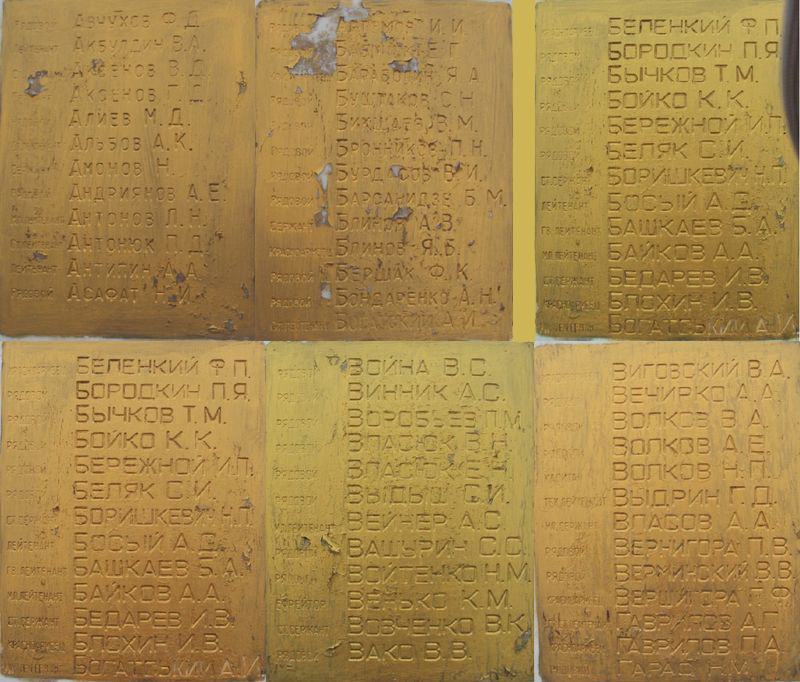 РЯДОВОЙ АВЧУХОВ Ф.Д.
ЛЕЙТЕНАНТ АКБУЛДИН В.А.
АКСЕНОВ В.Д.
АКСЕНОВ Г.Д.
АЛИЕВ М.Д.
АЛЬБОВ А.К.
СЕРЖАНТ АМОНОВ Н.
АНДРИЯНОВ А.Е.
АНТОНОВ Л.Н.
СТ.ЛЕЙТЕНАНТ АНТОНЮК П.Д.
ЛЕЙТЕНАНТ АНТИПИН А.А.
РЯДОВОЙ АСАФАТ Н.И.
И.И.
Г.
Я.А.
РЯДОВОЙ БУШТАКОВ С.Н.
В.М.
РЯДОВОЙ БРОННИКОВ П.Н.
РЯДОВОЙ БУРДАСОВ В.И.
РЯДОВОЙ БАРСАНИДЗЕ Б.М.
СЕРЖАНТ БЛИНОВ А.В.
КРАСНОАРМЕЕЦ БЛИНОВ Я.Б.
РЯДОВОЙ БЕРШАК Ф.К.
РЯДОВОЙ БОНДАРЕНКО А.Н.
СТ.ЛЕЙТЕНАНТ БОГАТСКИЙ А.И.
БЕЛЕНКИЙ Ф.П.
РЯДОВОЙ БОРОДКИН П.Я.
РЯДОВОЙ БЫЧКОВ Т.М.
РЯДОВОЙ БОЙКО К.К.
РЯДОВОЙ БЕРЕЖНОЙ И.П.
РЯДОВОЙ БЕЛЯК С.И.
СТ.СЕРЖАНТ БОРИШКЕВИЧ Н.П.
ЛЕЙТЕНАНТ БОСЫЙ А.С.
ГВ.ЛЕЙТЕНАНТ БАШКАЕВ Б.А.
МЛ.ЛЕЙТЕНАНТ БАЙКОВ А.А.
СТ.СЕРЖАНТ БЕДАРЕВ И.В.
КРАСНОАРМЕЕЦ БЛОХИН И.В.
БОГАТСЬКИЙ А.И.
БЕЛЕНКИЙ Ф.П.
РЯДОВОЙ БОРОДКИН П.Я.
РЯДОВОЙ БЫЧКОВ Т.М.
РЯДОВОЙ БОЙКО К.К.
РЯДОВОЙ БЕРЕЖНОЙ И.П.
РЯДОВОЙ БЕЛЯК С.И.
СТ.СЕРЖАНТ БОРИШКЕВИЧ Н.П.
ЛЕЙТЕНАНТ БОСЫЙ А.С.
ГВ.ЛЕЙТЕНАНТ БАШКАЕВ Б.А.
МЛ.ЛЕЙТЕНАНТ БАЙКОВ А.А.
СТ.СЕРЖАНТ БЕДАРЕВ И.В.
КРАСНОАРМЕЕЦ БЛОХИН И.В.
БОГАТСЬКИЙ А.И.
РЯДОВОЙ ВОЙНА В.С.
РЯДОВОЙ ВИННИК А.С.
РЯДОВОЙ ВОРОБЬЕВ П.М.
РЯДОВОЙ ВЛАСЮК В.Н.
РЯДОВОЙ ВЛАСЮК Е.Ч.
РЯДОВОЙ ВЫДЫШ С.И.
МЛ.ЛЕЙТЕНАНТ ВЕЙНЕР А.С.
РЯДОВОЙ ВАШУРИН С.С.
РЯДОВОЙ ВОЙТЕНКО Н.М.
ЕФРЕЙТОР ВЕНЬКО К.М.
СТ.СЕРЖАНТ ВОВЧЕНКО В.К.
РЯДОВОЙ ВАКО В.В.
ВИГОВСКИЙ В.А.
ВЕЧИРКО А.А.
ВОЛКОВ В.А.
РЯДОВОЙ ВОЛКОВ А.Е.
КАПИТАН ВОЛКОВ Н.П.
ТЕХ.ЛЕЙТЕНАНТ ВЫДРИН Г.Д.
МЛ.СЕРЖАНТ ВЛАСОВ А.А.
РЯДОВОЙ ВЕРНИГОРА П.В.
РЯДОВОЙ ВЕРМИНСКИЙ В.В.
ВЕРШИГОРА Г.Ф.
РЯДОВОЙ ГАВРИЛОВ А.Г.
ГАВРИЛОВ П.А.
РЯДОВОЙ ГАРАС Н.М.